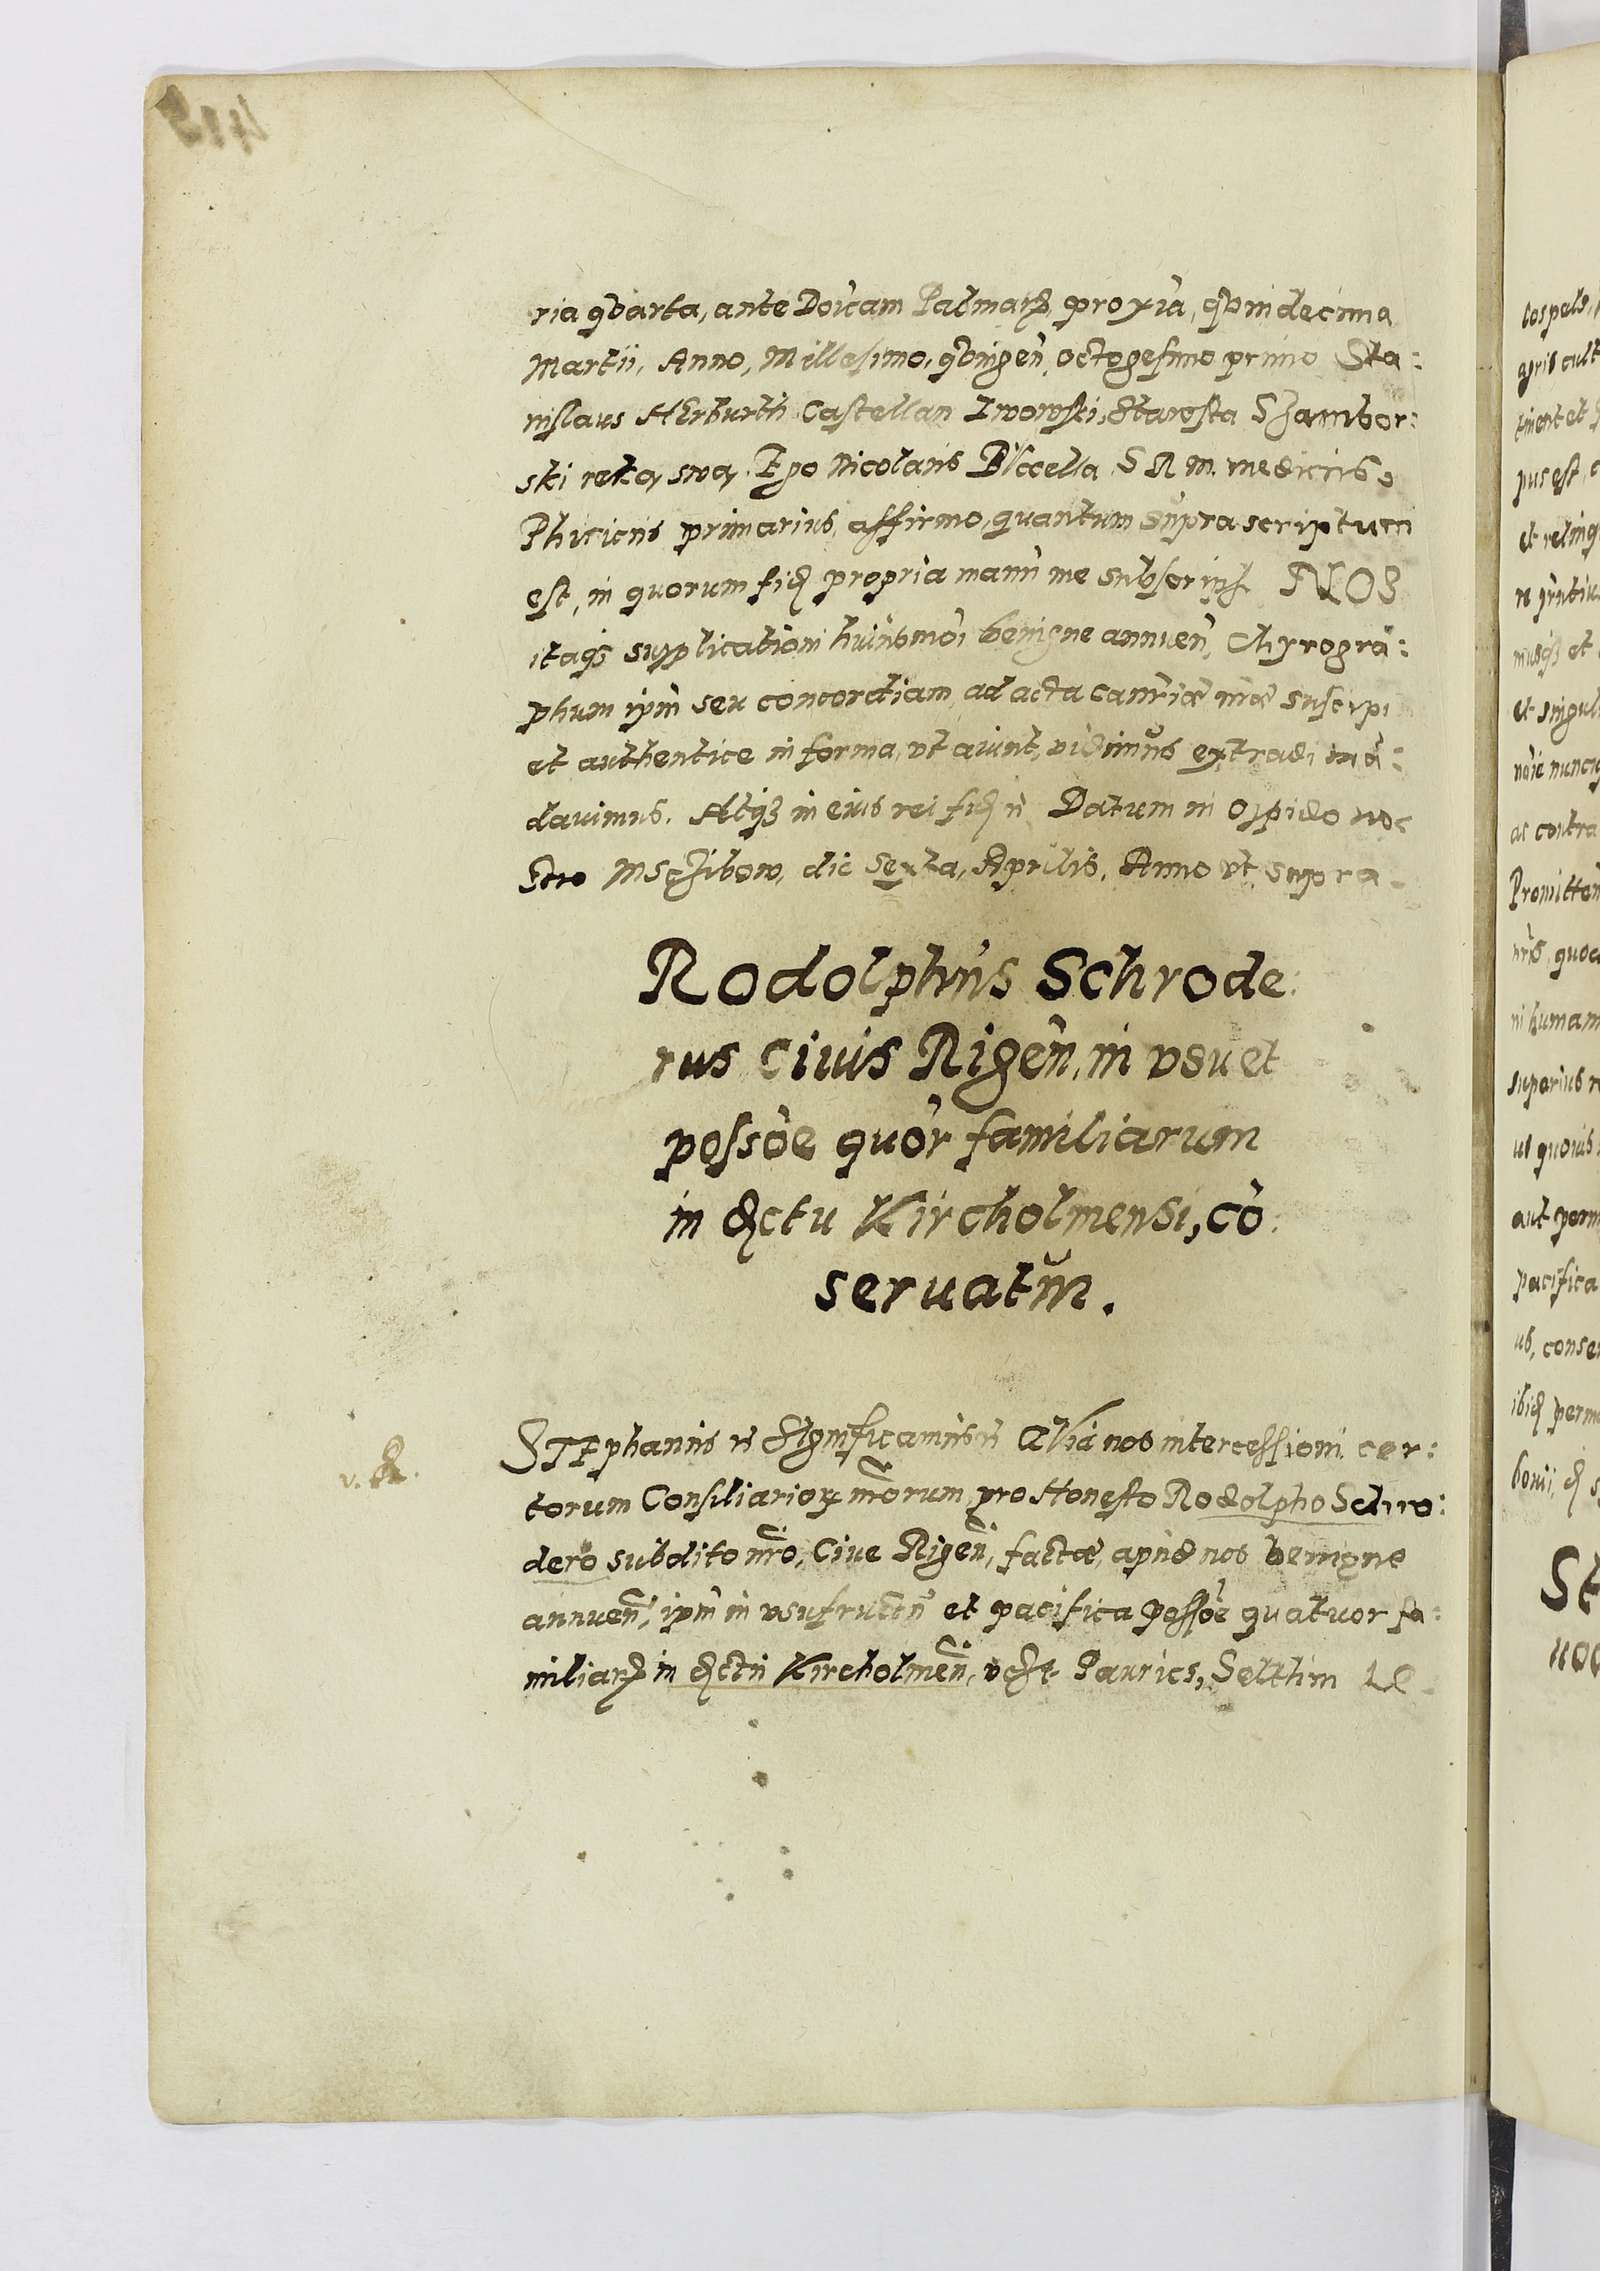 ria qvarta, ante Dõicam Palmarꝝ, proxiã, qvindecima
Martii, Anno, Millesimo, qvingeñ, octogesimo primo Sta:
nislaus HErburth Castellan Lwowski, Starosta Szambor:
ski reką swą. Ego Nicolaus BVccella S R M. medicus,
Phisicus primarius, affirmo, quantum supra scriptum
est, in quorum fidẽ propria manu me subscripsi NOS
itaqꝫ supplicationi huiusmõi benigne annueñ, Chyrogra:
phum ipm̃ seu concordiam, ad acta canrĩæ nrẽ suscepi
et authentice in forma, vt aiunt, vidimus extradi mã:
davimus. Atqꝫ in eius rei fidẽ ñ Datum in Oppido nos
stro Mscżibow, die Sexta, Aprilis, Anno vt supra.
Rodolphus Schrode:
rus Ciuis Rigeñ, in vsu et
possõe quõr familiarum
in đctu Kircholmensi, cõ:
seruatũr.
STEphanus ñ Significamus ñ Q̃uia nos intercessioni cer:
v. R.
torum Consiliarioꝝ nr̃orum, pro Honesto Rodolpho Schro:
dero subdito nr̃o, Ciue Rigeñ, factæ, apud nos benigne
annueñ, ipm̃ in vsufructu et pacifica possõe quatuor fa:
miliarꝝ in đctu Kircholmeñ, vdzt Paurics, Selthim Le